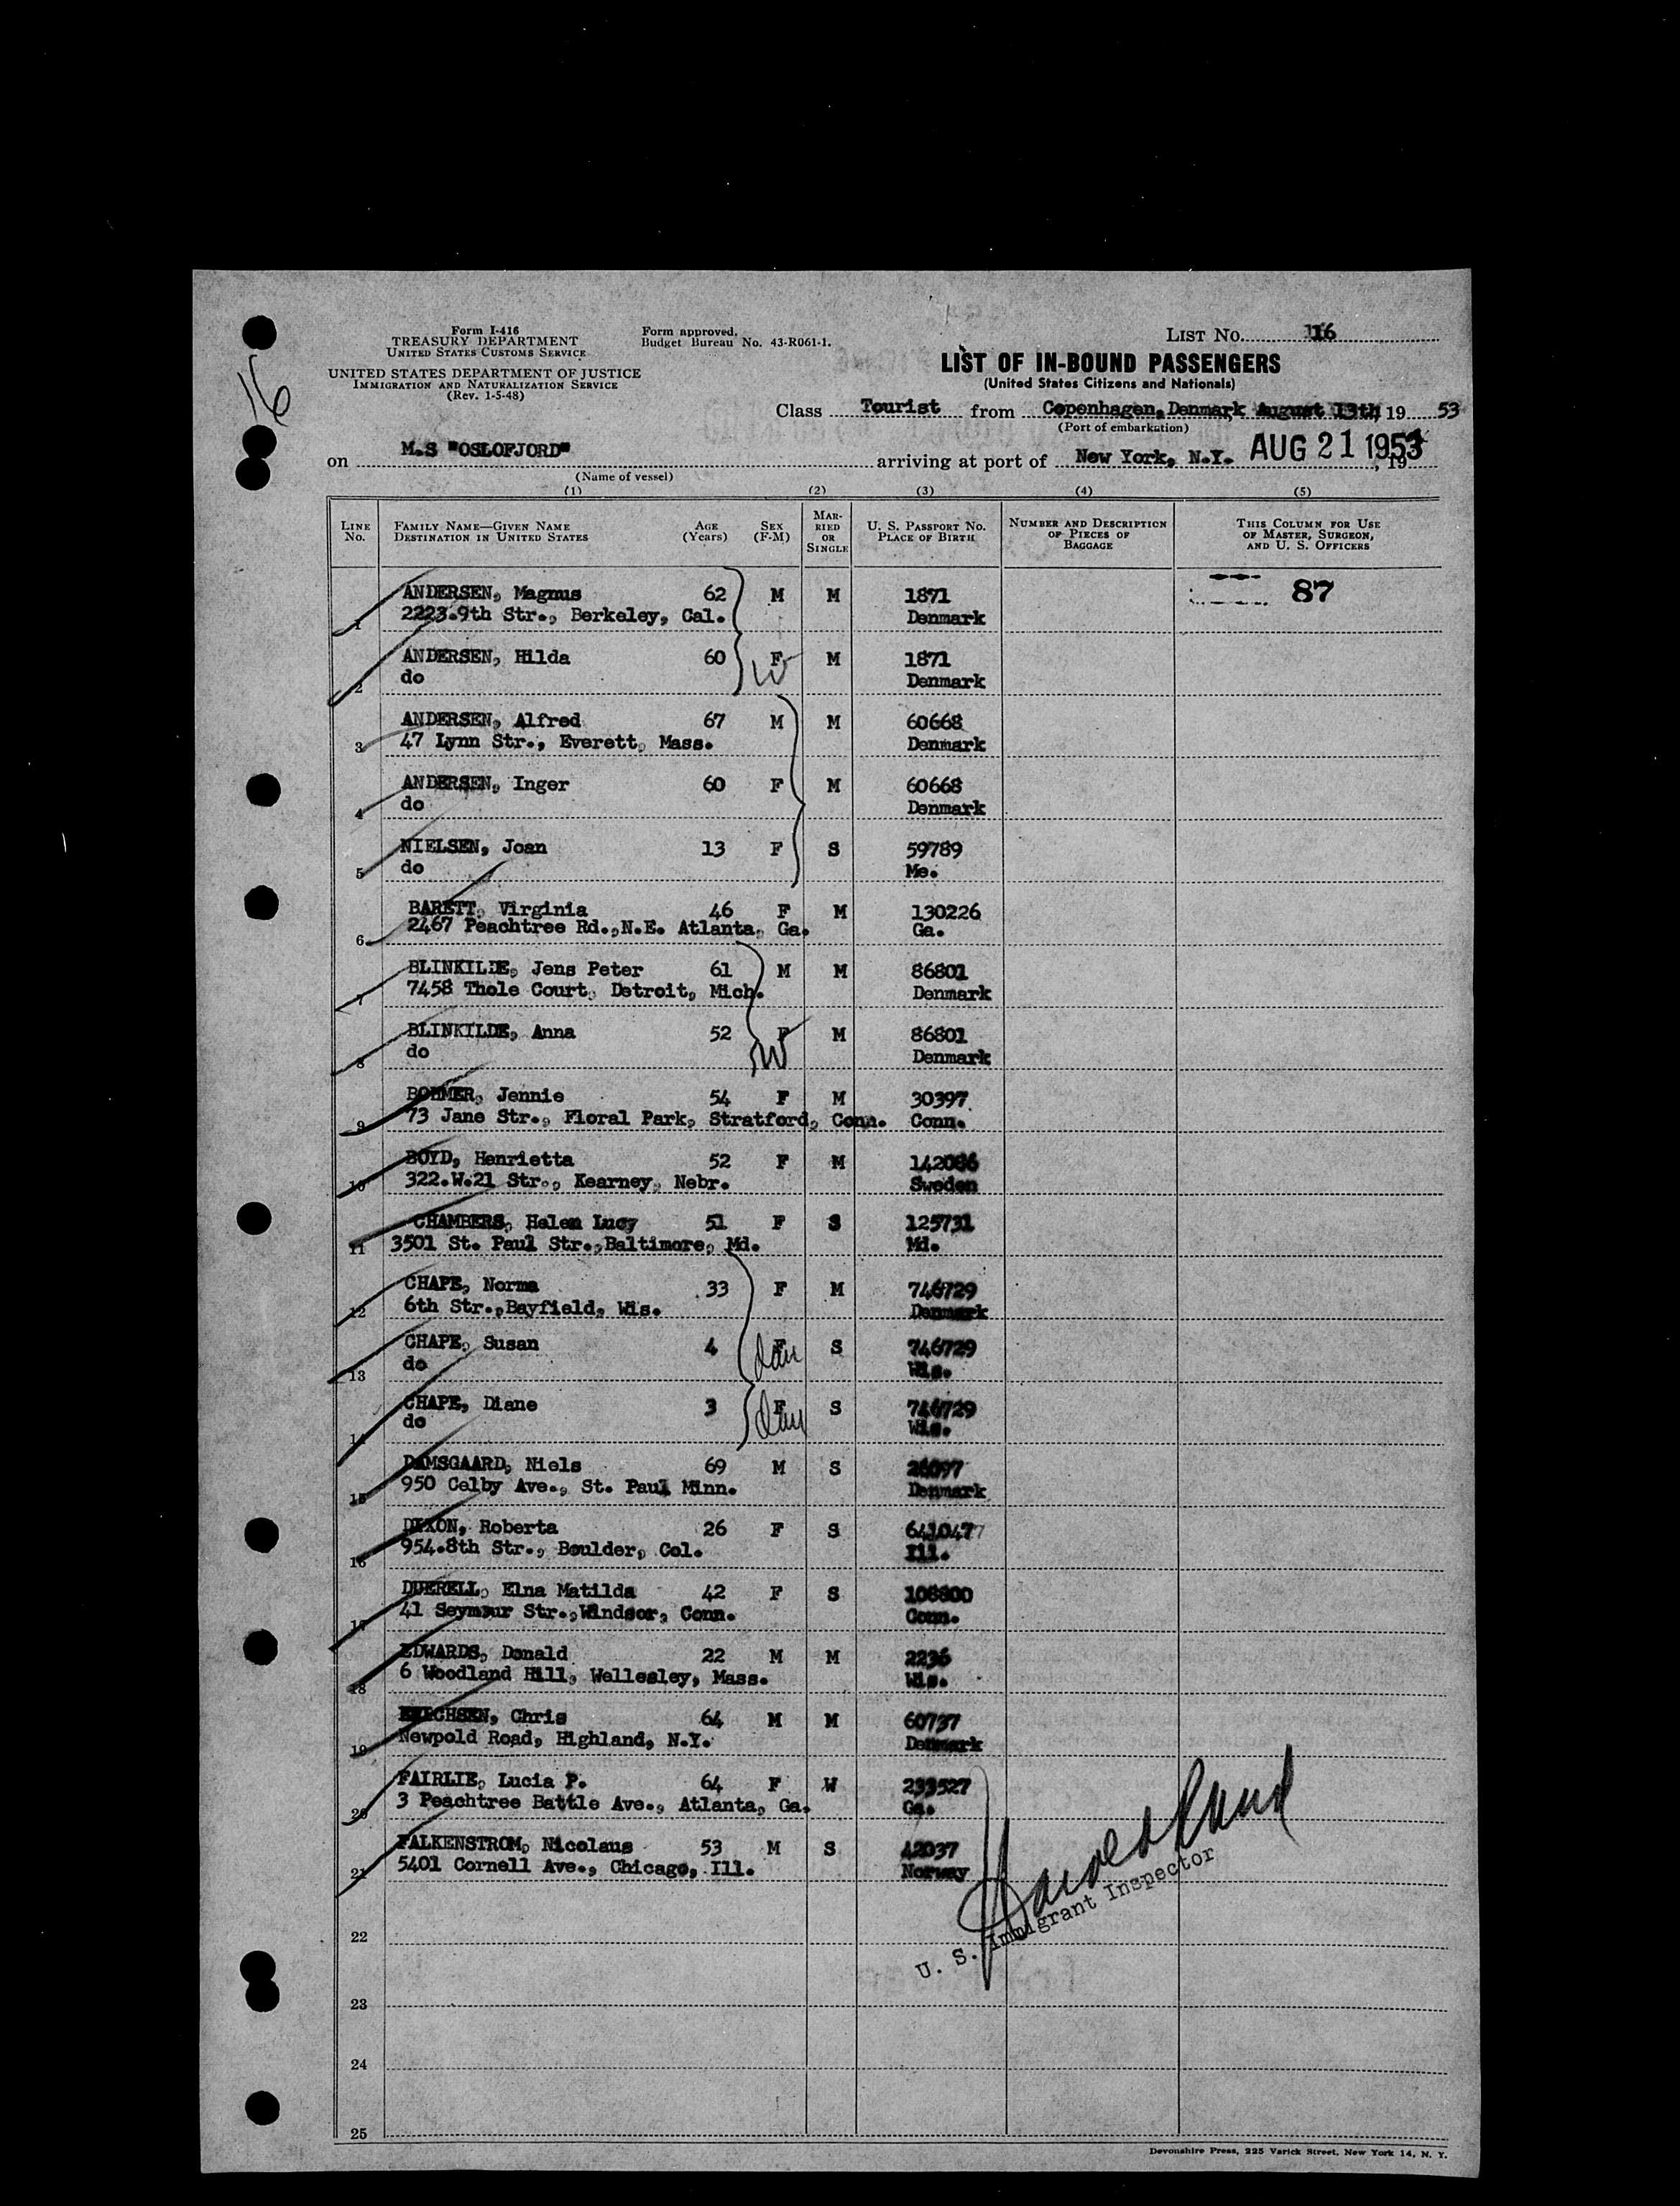 Form I-416
TREASURY DEPARTMENT
UNITED STATES CUSTOMS SERVICE
UNITED STATES DEPARTMENT OF JUSTICE
IMMIGRATION AND NATURALIZATION SERVICE
(Rev. 1-5-48)
Form approved.
Budget Bureau No. 43-R061-1.
LIST No. 16
16
LIST OF IN-BOUND PASSENGERS
(United States Citizens and Nationals)
Class Tourist from Copenhagen, Denmark, August 13th, 19 53
(Port of embarkation)
on M.S "OSLOFJORD" arriving at port of New York, N.Y. AUG 21 1953, 19
(Name of vessel)
(1) (2) (3) (4) (5)
LINE No. FAMILY NAME—GIVEN NAME DESTINATION IN UNITED STATES AGE (Years) SEX (F-M) MARRIED OR SINGLE U. S. PASSPORT No. PLACE OF BIRTH NUMBER AND DESCRIPTION OF PIECES OF BAGGAGE THIS COLUMN FOR USE OF MASTER, SURGEON, AND U. S. OFFICERS
ANDERSEN, Magnus 62 M M 1871 87
1 2223.9th Str., Berkeley, Cal. Denmark
ANDERSEN, Hilda 60 F M 1871
2 do W Denmark
ANDERSEN, Alfred 67 M M 60668
3 47 Lynn Str., Everett, Mass. Denmark
ANDERSEN, Inger 60 F M 60668
4 do Denmark
NIELSEN, Joan 13 F S 59789
5 do Me.
BARETT, Virginia 46 F M 130226
6 2467 Peachtree Rd.,N.E. Atlanta, Ga. Ga.
BLINKILDE, Jens Peter 61 M M 86801
7 7458 Thole Court, Detroit, Mich. Denmark
BLINKILDE, Anna 52 F M 86801
8 do W Denmark
BOHMER, Jennie 54 F M 30397
9 73 Jane Str., Floral Park, Stratford, Conn. Conn.
BOYD, Henrietta 52 F M 142086
10 322.W.21 Str., Kearney, Nebr. Sweden
CHAMBERS, Helen Lucy 51 F S 125731
11 3501 St. Paul Str.,Baltimore, Md. Md.
CHAPE, Norma 33 F M 746729
12 6th Str.,Bayfield, Wis. Denmark
CHAPE, Susan 4 F S 746729
13 do dau Wis.
CHAPE, Diane 3 F S 746729
14 do dau Wis.
DAMSGAARD, Niels 69 M S 26097
15 950 Celby Ave., St. Paul Minn. Denmark
DIXON, Roberta 26 F S 641047
16 954.8th Str., Boulder, Col. Ill.
DUERELL, Elna Matilda 42 F S 108800
17 41 Seymour Str.,Windsor, Conn. Conn.
EDWARDS, Donald 22 M M 2236
18 6 Woodland Hill, Wellesley, Mass. Wis.
Chris 64 M M 60737
19 Newpold Road, Highland, N.Y. Denmark
FAIRLIE, Lucia P. 64 F W 233527
20 3 Peachtree Battle Ave., Atlanta, Ga. Ga.
FALKENSTROM, Nicolaus 53 M S 42037
21 5401 Cornell Ave., Chicago, Ill. Norway
U. S. Immigrant Inspector
22
23
24
25
Devonshire Press, 225 Varick Street, New York 14, N. Y.